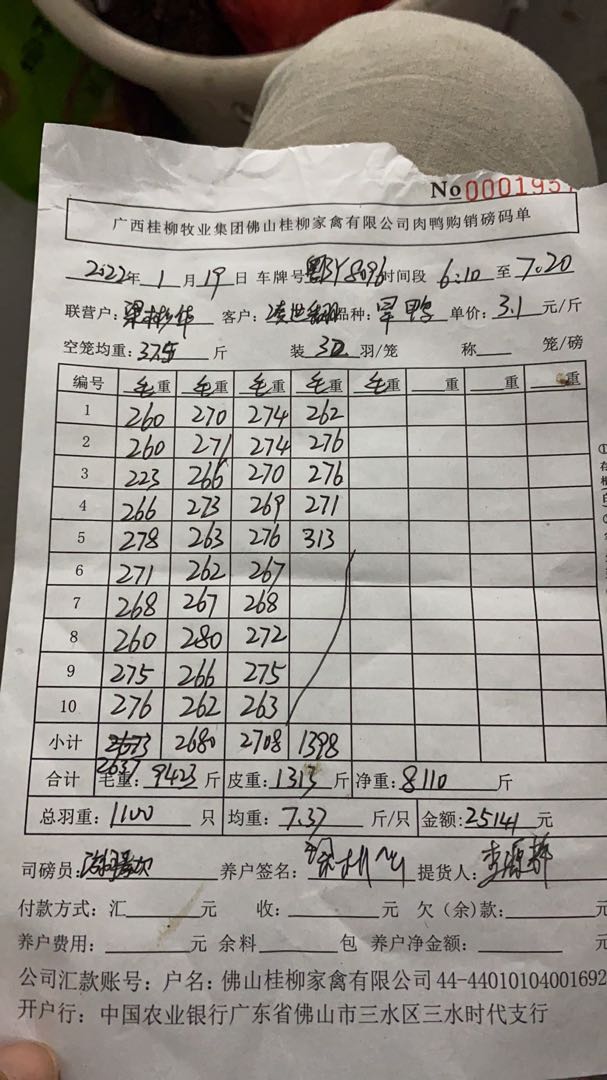 No 000195
广西桂柳牧业集团佛山桂柳家禽有限公司肉鸭购销磅码单
2022年 1月 19日 车牌号粤BY8096时间段 6:10 至 7.20
联营户: 客户: 品种: 鸭 单价: 3.1 元/斤
空笼均重: 37.5 斤 装 32 羽/笼 称 笼/磅
编号 毛重 毛重 毛重 毛重 毛重 重 重 重
1 260 270 274 262
2 260 271 274 276
3 223 266 270 276
4 266 273 269 271
5 278 263 276 313
6 271 262 267
7 268 267 268
8 260 280 272
9 275 266 275
10 276 262 263
小计 2673 2680 2708 1398
2637
合计 毛重: 9423 斤 皮重: 1313 斤 净重: 8110 斤
总羽重: 1100 只 均重: 7.37 斤/只 金额: 25141 元
司磅员: 养户签名: 提货人:
付款方式: 汇 元 收: 元 欠(余)款: 元
养户费用: 元 余料 包 养户净金额: 元
公司汇款账号: 户名: 佛山桂柳家禽有限公司 44-44010104001692
开户行: 中国农业银行广东省佛山市三水区三水时代支行